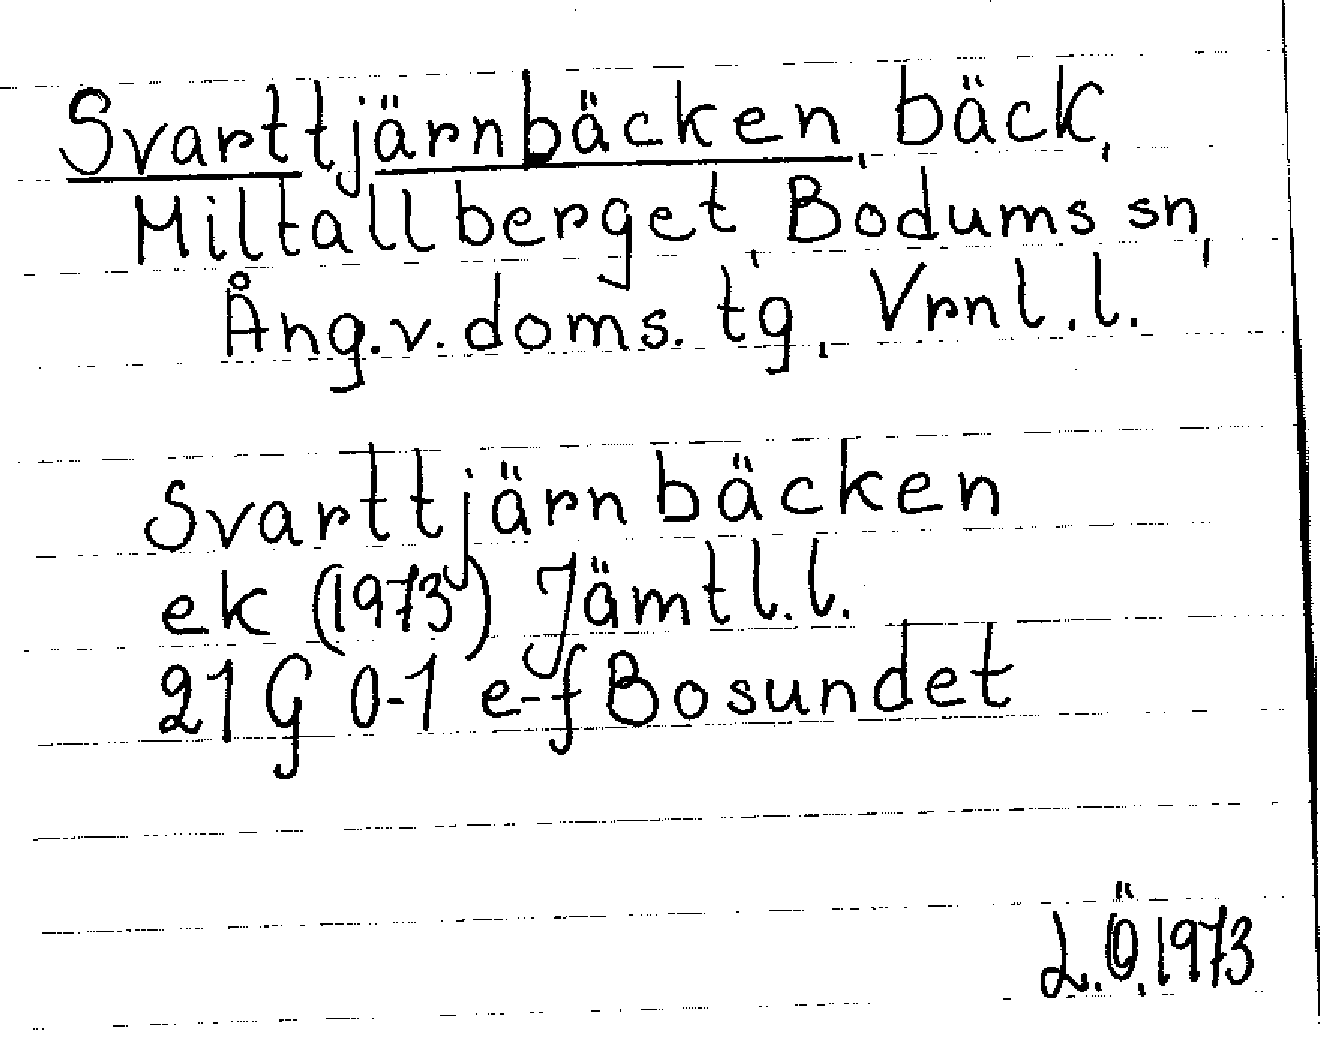 Svarttjärnbäcken, bäck,
Miltallberget, Bodums sn,
Ång.v.doms. tg, Vrnl.l.
Svarttjärnbäcken
ek (1973) Jämtl.l.
21 G 0-1 e-f Bosundet
L.Ö. 1973